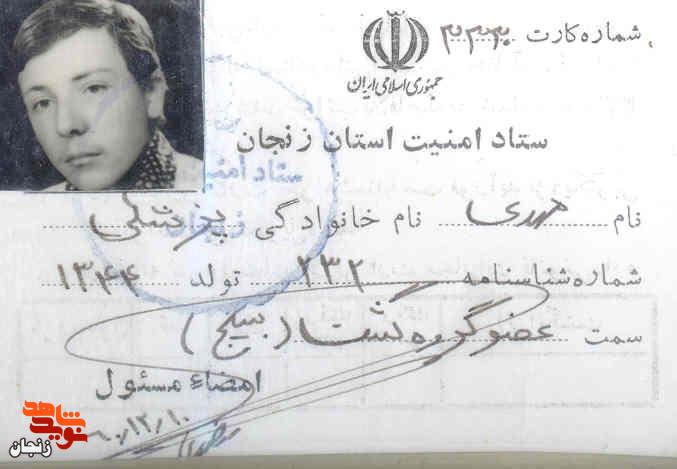 شماره کارت
جمهوری اسلامی ایران
ستاد امنیت استان زنجان
ستاد امنیت
نام مهدی نام خانوادگی
شماره شناسنامه ۲۳۲ تولد ۱۳۴۴
سمت عضو گروه گشت (بسیج)
امضاء مسئول
۶۰/۱۲/۱۰
نوید شاهد
زنجان